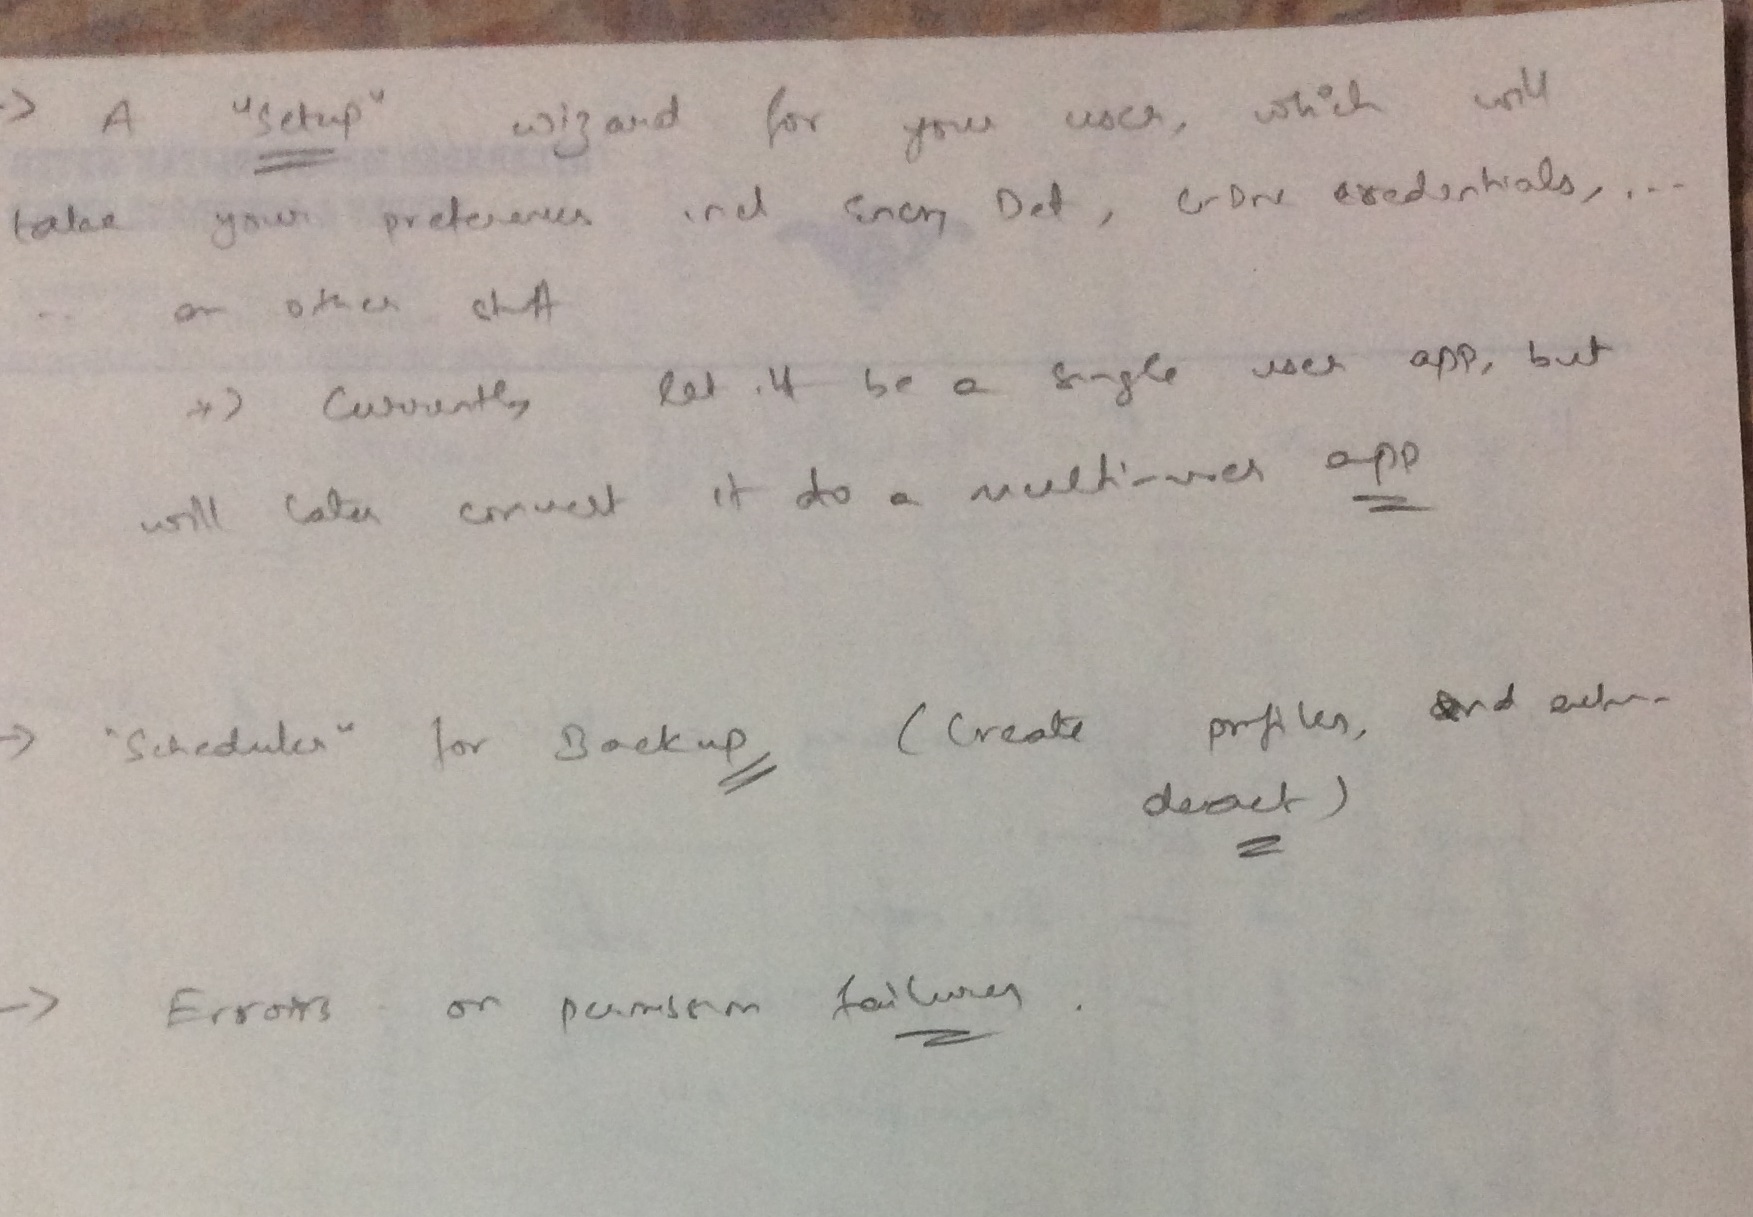 -> A "setup" wizard for your user, which will
take your preferences incl Det, credentials, ...
.. or other
*) Currently, let it be a single user app, but
will later convert it to a multi-user app
-> "Scheduler" for Backup (Create profiles, and
-> Errors on permission failures.